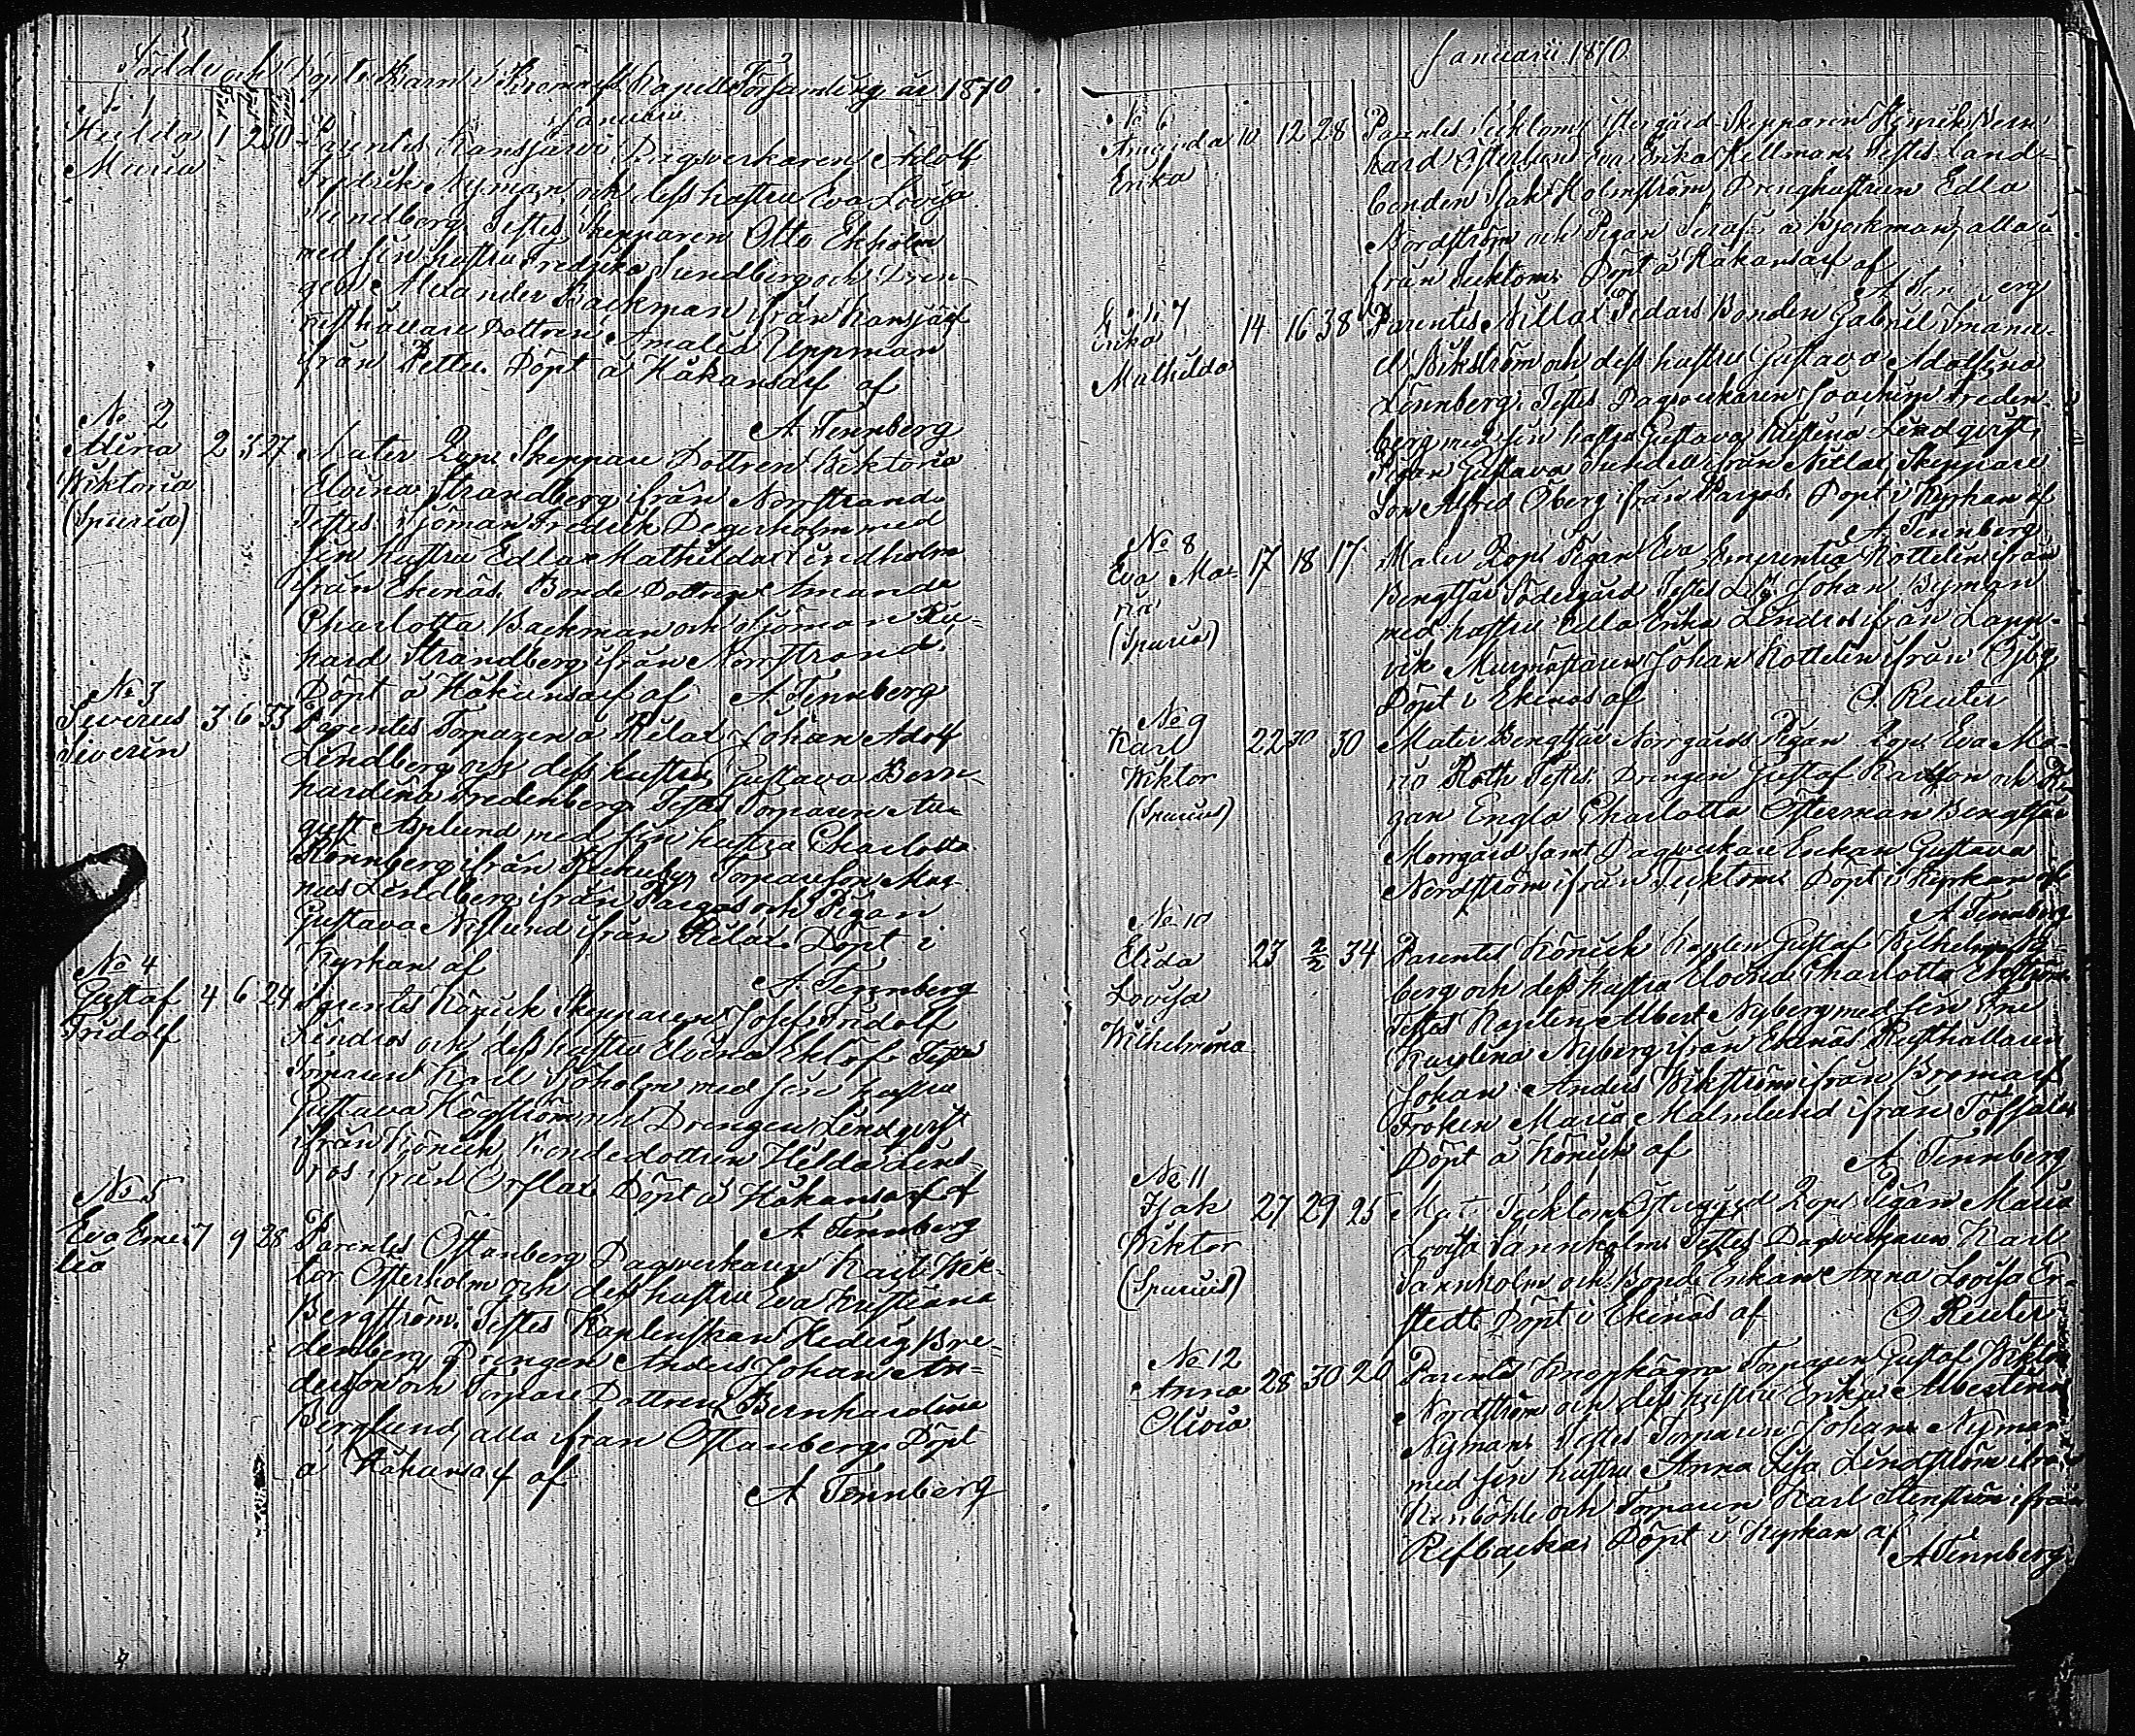 Födde och Döpte Barn i Bromarfs Kapell Församling år 1870
Januarii
No 1
Hulda 1 2 30 Parentes Kansjärvi Dagsverkaren Adolf
Maria Fredrik Nyman och dess hustru Eva Lovisa
Sundberg. Testes Skepparen Otto Ekholm
med sin hustru Fredrika Sundberg och Dren-
gen Alexander Backman ifrån Kansjärf
Rusthållare Dottren Amalia Uppman
från Pettu. Döpt å Håkansarf af
A Tennberg
No 2
Alina 2 3 27 Mater Löps Skeppare Dottren Wiktoria
Wiktoria Elvina Strandberg ifrån Norrstrand
(Spuria) Testes Sjöman Fredrik Degerholm med
sin hustru Edla Mathilda Lindholm
ifrån Ekenäs, Bonde Dottren Amanda
Charlotta Backman och Sjöman Ri-
hard Strandberg ifrån Norrstrand.
Döpt å Håkansarf af A Tennberg
No 3
Severus 3 6 33 Parentes Torparen å Rilax Johan Adolf
Severin Lindberg och dess hustru Gustava Bern-
hardina Fredenberg. Testes Torparen Au-
gust Asplund med sin hustru Charlotta
Rönnberg ifrån Torpareson Mag-
nus Lindberg ifrån Pargas och Pigan
Gustava Nislund ifrån Rilax. Döpt i
Kyrkan af
A Tennberg
No 4
Gustaf 4 6 24 Parentes Könick Skepparen Josef Fridolf
Fridolf Lindros och dess hustru Elvina Eklöf Testes
Torparen Karl Sjöholm med sin hustru
Gustava Högström och Drengen Lindqvist
ifrån Könick, Bondedottren Hilda Lind-
ros ifrån Orslax Döpt å Håkansarf af
A Tennberg
No 5
Eva Eme- 7 9 28 Parentes Östanberg Dagsverkaren Karl Wik-
lia tor Österholm och dess hustru Eva Kristiana
Bergström. Testes Kaplenskan Hedvig Bre-
denberg Drengen Anders Johan An-
dersson och Torpare Dottren Bernhardina
Berglund, alla ifrån Östanberg. Döpt
å Håkansarf af
A Tennberg
Januarii 1870
No 6
Amanda 10 12 28 Parentes Tecktom Östergård Skepparen Henrik Bern-
Erika hard Österlund Eva Erika Hellman. Testes land-
bonden Isak Holmström, Drenghustrun Edla
Nordström och Pigan Serafia Björkman, alla
från Tecktom. Döpt å Håkansarf af
No 7
Erika 14 16 38 Parentes Nillax Pedars Bonden Gabriel Imanu-
Mathilda el Wikström och dess hustru Gustava Adolfina
Lönnberg. Testes Dagsverkaren Joachim Freden-
berg med sin hustru Gustava Kristina Lindqvist,
Pigan Gustava Sundell ifrån Nillax Skeppare
Son Alfred Öberg ifrån Pargas. Döpt i Kyrkan af
A Tennberg
No 8
Eva Ma- 17 18 17 Mater Löps Pigan Eva Emerentia Kottelin ifrån
ria Bengtsår Södergård Testes Johan Byman
(Spuria) med hustru Edla Erika Lindros ifrån Lapp-
vik Murmästaren Johan Kottelin ifrån
Döpt i Ekenäs af O. Reuter
No 9
Karl 22 30 30 Mater Bengtsår Norrgårds Pigan Löps Eva Ma-
Wiktor ria Roth Testes Drengen Gustaf Karlsson och Pi-
(Spurius) gan Engla Charlotta Österman Bengtsår
Norrgård samt Dagsverkare Enkan Gustava
Nordström ifrån Tecktom Döpt i Kyrkan af
A Tennberg
No 10
Elida 23 2/2 34 Parentes Könick Kaplen Gustaf Wilhelm
Lovisa berg och dess hustru Elvina Charlotta Ekström
Wilhelmina Testes Kaplen Albert Nyberg med sin Fru
Karolina Nyberg ifrån Ekenäs Rusthållaren
Johan Anders Wikström ifrån Bromarf
Fröken Maria Malmlund ifrån Töfsala
Döpt å Könick af A Tennberg
No 11
Isak 27 29 25 Mat: Tecktom Östergård Löps Pigan Maria
Wiktor Lovisa Sannholm Testes Dagsverkaren Karl
(Spurius) Sannholm och Bonde Enkan Anna Lovisa Er-
stedt Döpt i Ekenäs af O. Reuter
No 12
Anna 28 30 20 Parentes Knopkägra Torparen Gustaf Wiktor
Olivia Nordström och dess hustru Erika Albertina
Nyman. Testes Torparen Johan Nyman
med sin hustru Anna Lisa Lindström ifrån
Kinböhle och Torparen Karl Stenström ifrån
Refbacka Döpt i Kyrkan af
A Tennberg